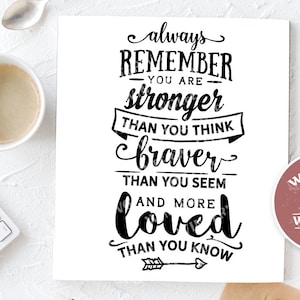 always
REMEMBER
YOU ARE
stronger
THAN YOU THINK
braver
THAN YOU SEEM
AND MORE
loved
THAN YOU KNOW